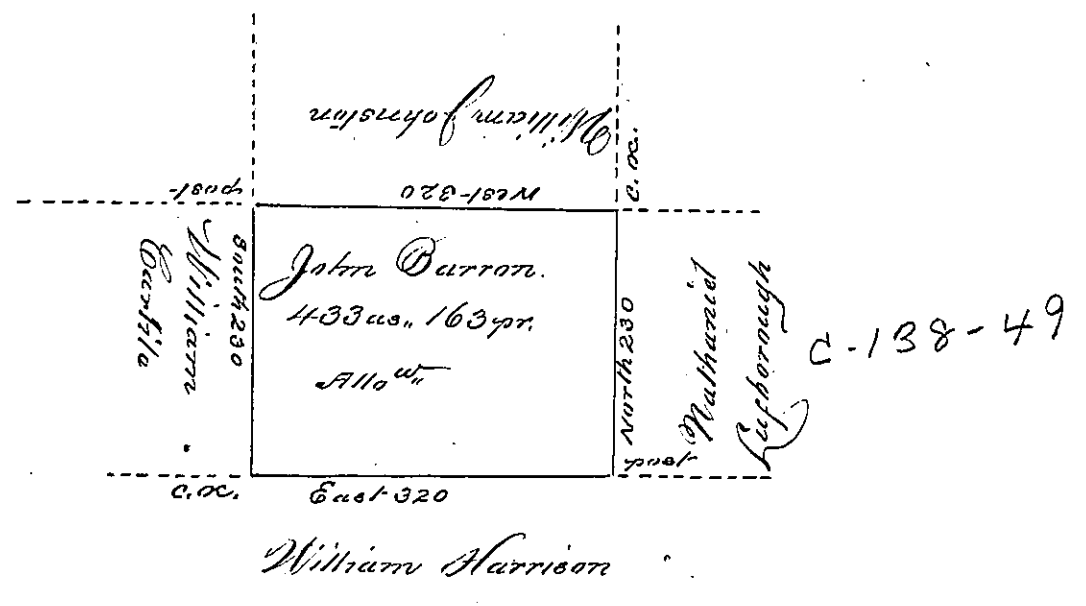 William Johnston
C. OC.
post
West-320
William
Curtile
South 230
John Barron.
433 as,, 163 pr.
Allo w,,
North 230
Nathaniel
Lufborough
C-138-49
post
C. OC.
East 320
William Harrison